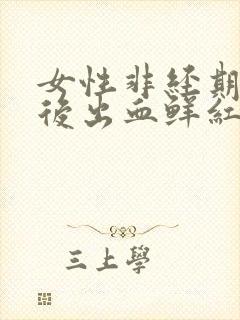 女性非经期
後出血鲜紅
三上學